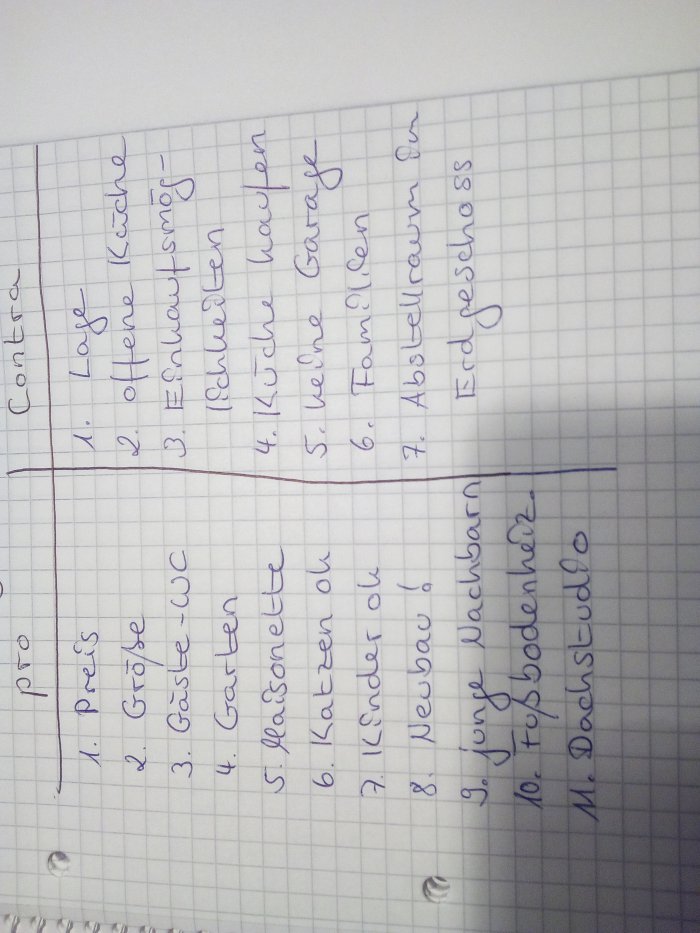 pro
1. Preis
2. Größe
3. Gäste-WC
4. Garten
5. Maisonette
6. Katzen ok
7. Kinder ok
8. Neubau!
9. junge Nachbarn
10. Fußbodenheiz.
11. Dachstudio
Contra
1. Lage
2. offene Küche
3. Einkaufsmög-
lichkeiten
4. Küche kaufen
5. keine Garage
6. Familien
7. Abstellraum im
Erdgeschoss